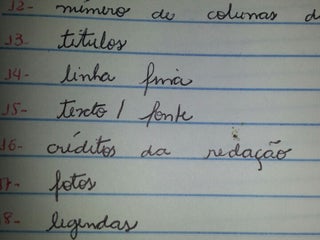 12- número de colunas d
13- títulos
14- linha fina
15- texto / fonte
16- créditos da redação
17- fotos
18- legendas